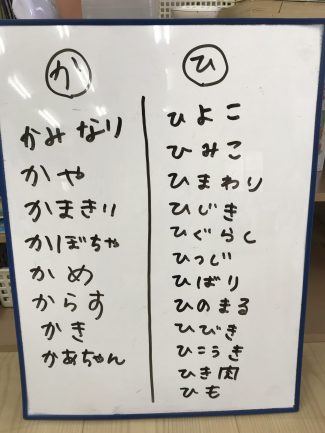 か
かみなり
かや
かまきり
かぼちゃ
かめ
からす
かき
かあちゃん
ひ
ひよこ
ひみこ
ひまわり
ひじき
ひぐらし
ひつじ
ひばり
ひのまる
ひびき
ひこうき
ひき肉
ひも